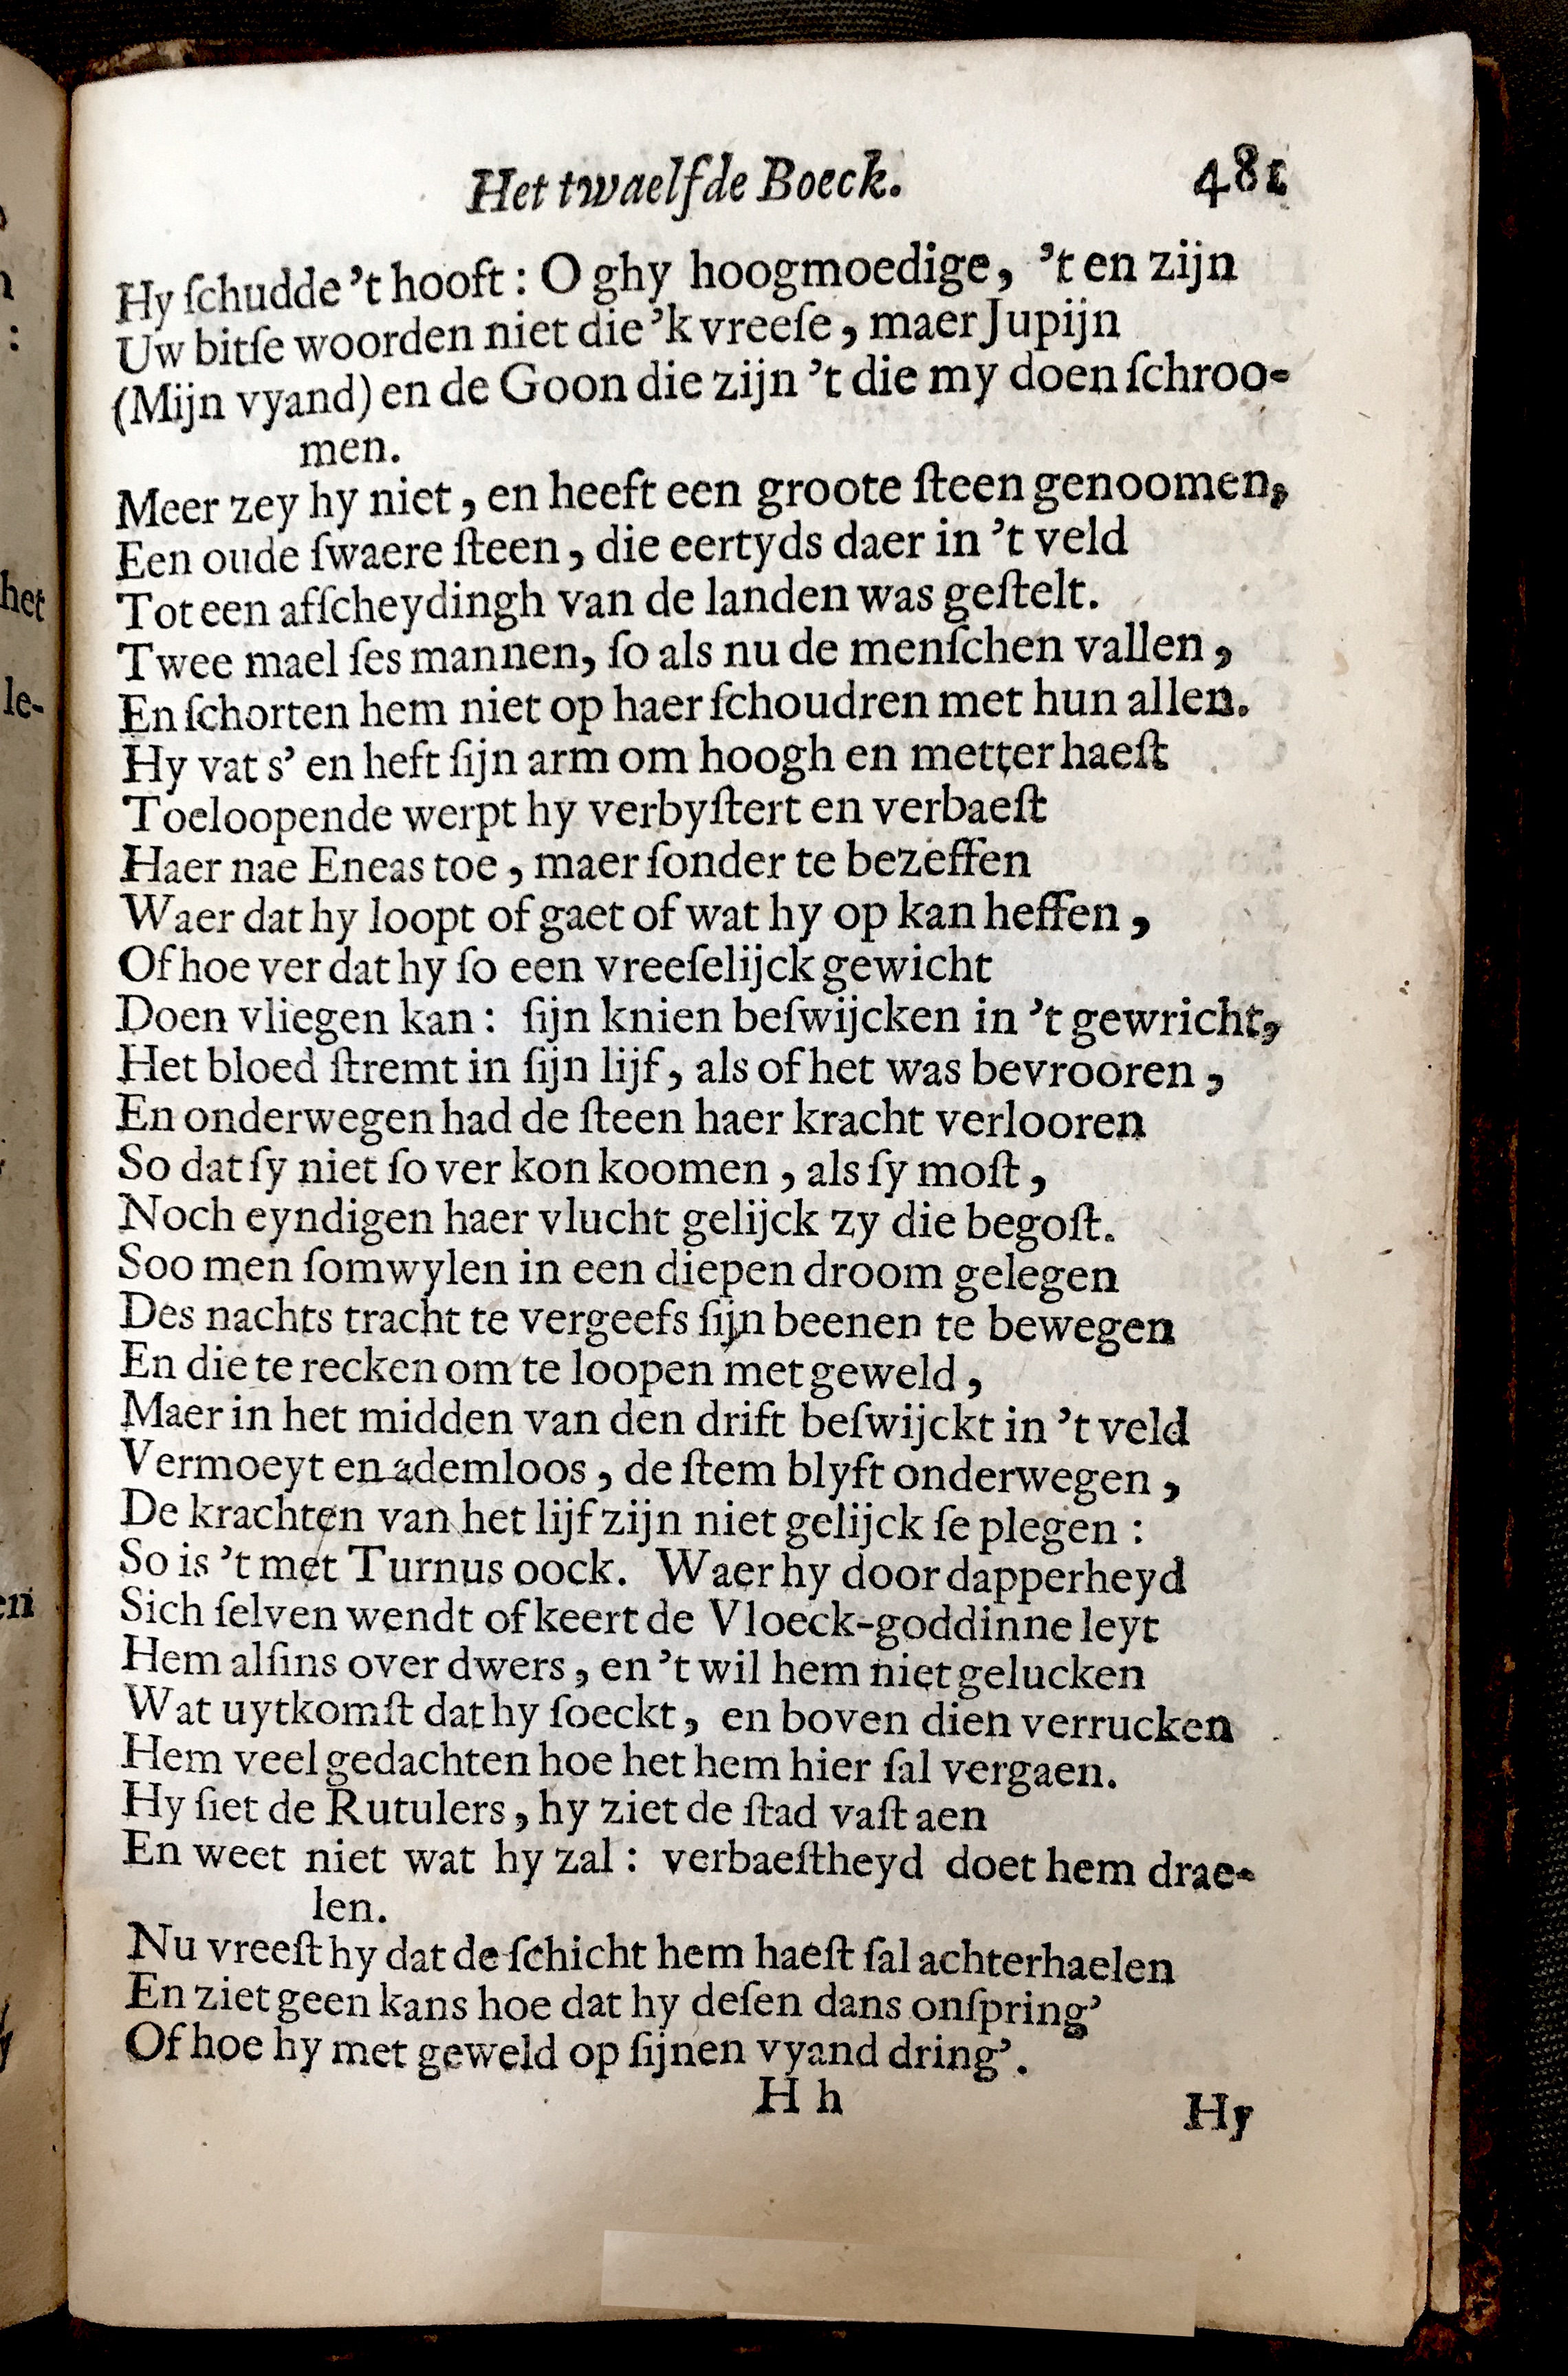 Het twaelfde Boeck. 481
Hy ſchudde ’t hooft : O ghy hoogmoedige, ’t en zijn
Uw bitſe woorden niet die ’k vreeſe, maer Jupijn
(Mijn vyand) en de Goon die zijn ’t die my doen ſchroo-
men.
Meer zey hy niet, en heeft een groote ſteen genoomen,
Een oude ſwaere ſteen, die eertyds daer in ’t veld
Tot een afſcheydingh van de landen was geſtelt.
Twee mael ſes mannen, ſo als nu de menſchen vallen,
En ſchorten hem niet op haer ſchoudren met hun allen.
Hy vat s’ en heft ſijn arm om hoogh en metter haeſt
Toeloopende werpt hy verbyſtert en verbaeſt
Haer nae Eneas toe, maer ſonder te bezeffen
Waer dat hy loopt of gaet of wat hy op kan heffen,
Of hoe ver dat hy ſo een vreeſelijck gewicht
Doen vliegen kan : ſijn knien beſwijcken in ’t gewricht,
Het bloed ſtremt in ſijn lijf, als of het was bevrooren,
En onderwegen had de ſteen haer kracht verlooren
So dat ſy niet ſo ver kon koomen, als ſy moſt,
Noch eyndigen haer vlucht gelijck zy die begoſt.
Soo men ſomwylen in een diepen droom gelegen
Des nachts tracht te vergeefs ſijn beenen te bewegen
En die te recken om te loopen met geweld,
Maer in het midden van den drift beſwijckt in ’t veld
Vermoeyt en ademloos, de ſtem blyft onderwegen,
De krachten van het lijf zijn niet gelijck ſe plegen :
So is ’t met Turnus oock. Waer hy door dapperheyd
Sich ſelven wendt of keert de Vloeck-goddinne leyt
Hem alſins over dwers, en ’t wil hem niet gelucken
Wat uytkomſt dat hy ſoeckt, en boven dien verrucken
Hem veel gedachten hoe het hem hier ſal vergaen.
Hy ſiet de Rutulers, hy ziet de ſtad vaſt aen
En weet niet wat hy zal : verbaeſtheyd doet hem drae-
len.
Nu vreeſt hy dat de ſchicht hem haeſt ſal achterhaelen
En ziet geen kans hoe dat hy deſen dans onſpring’
Of hoe hy met geweld op ſijnen vyand dring’.
H h Hy